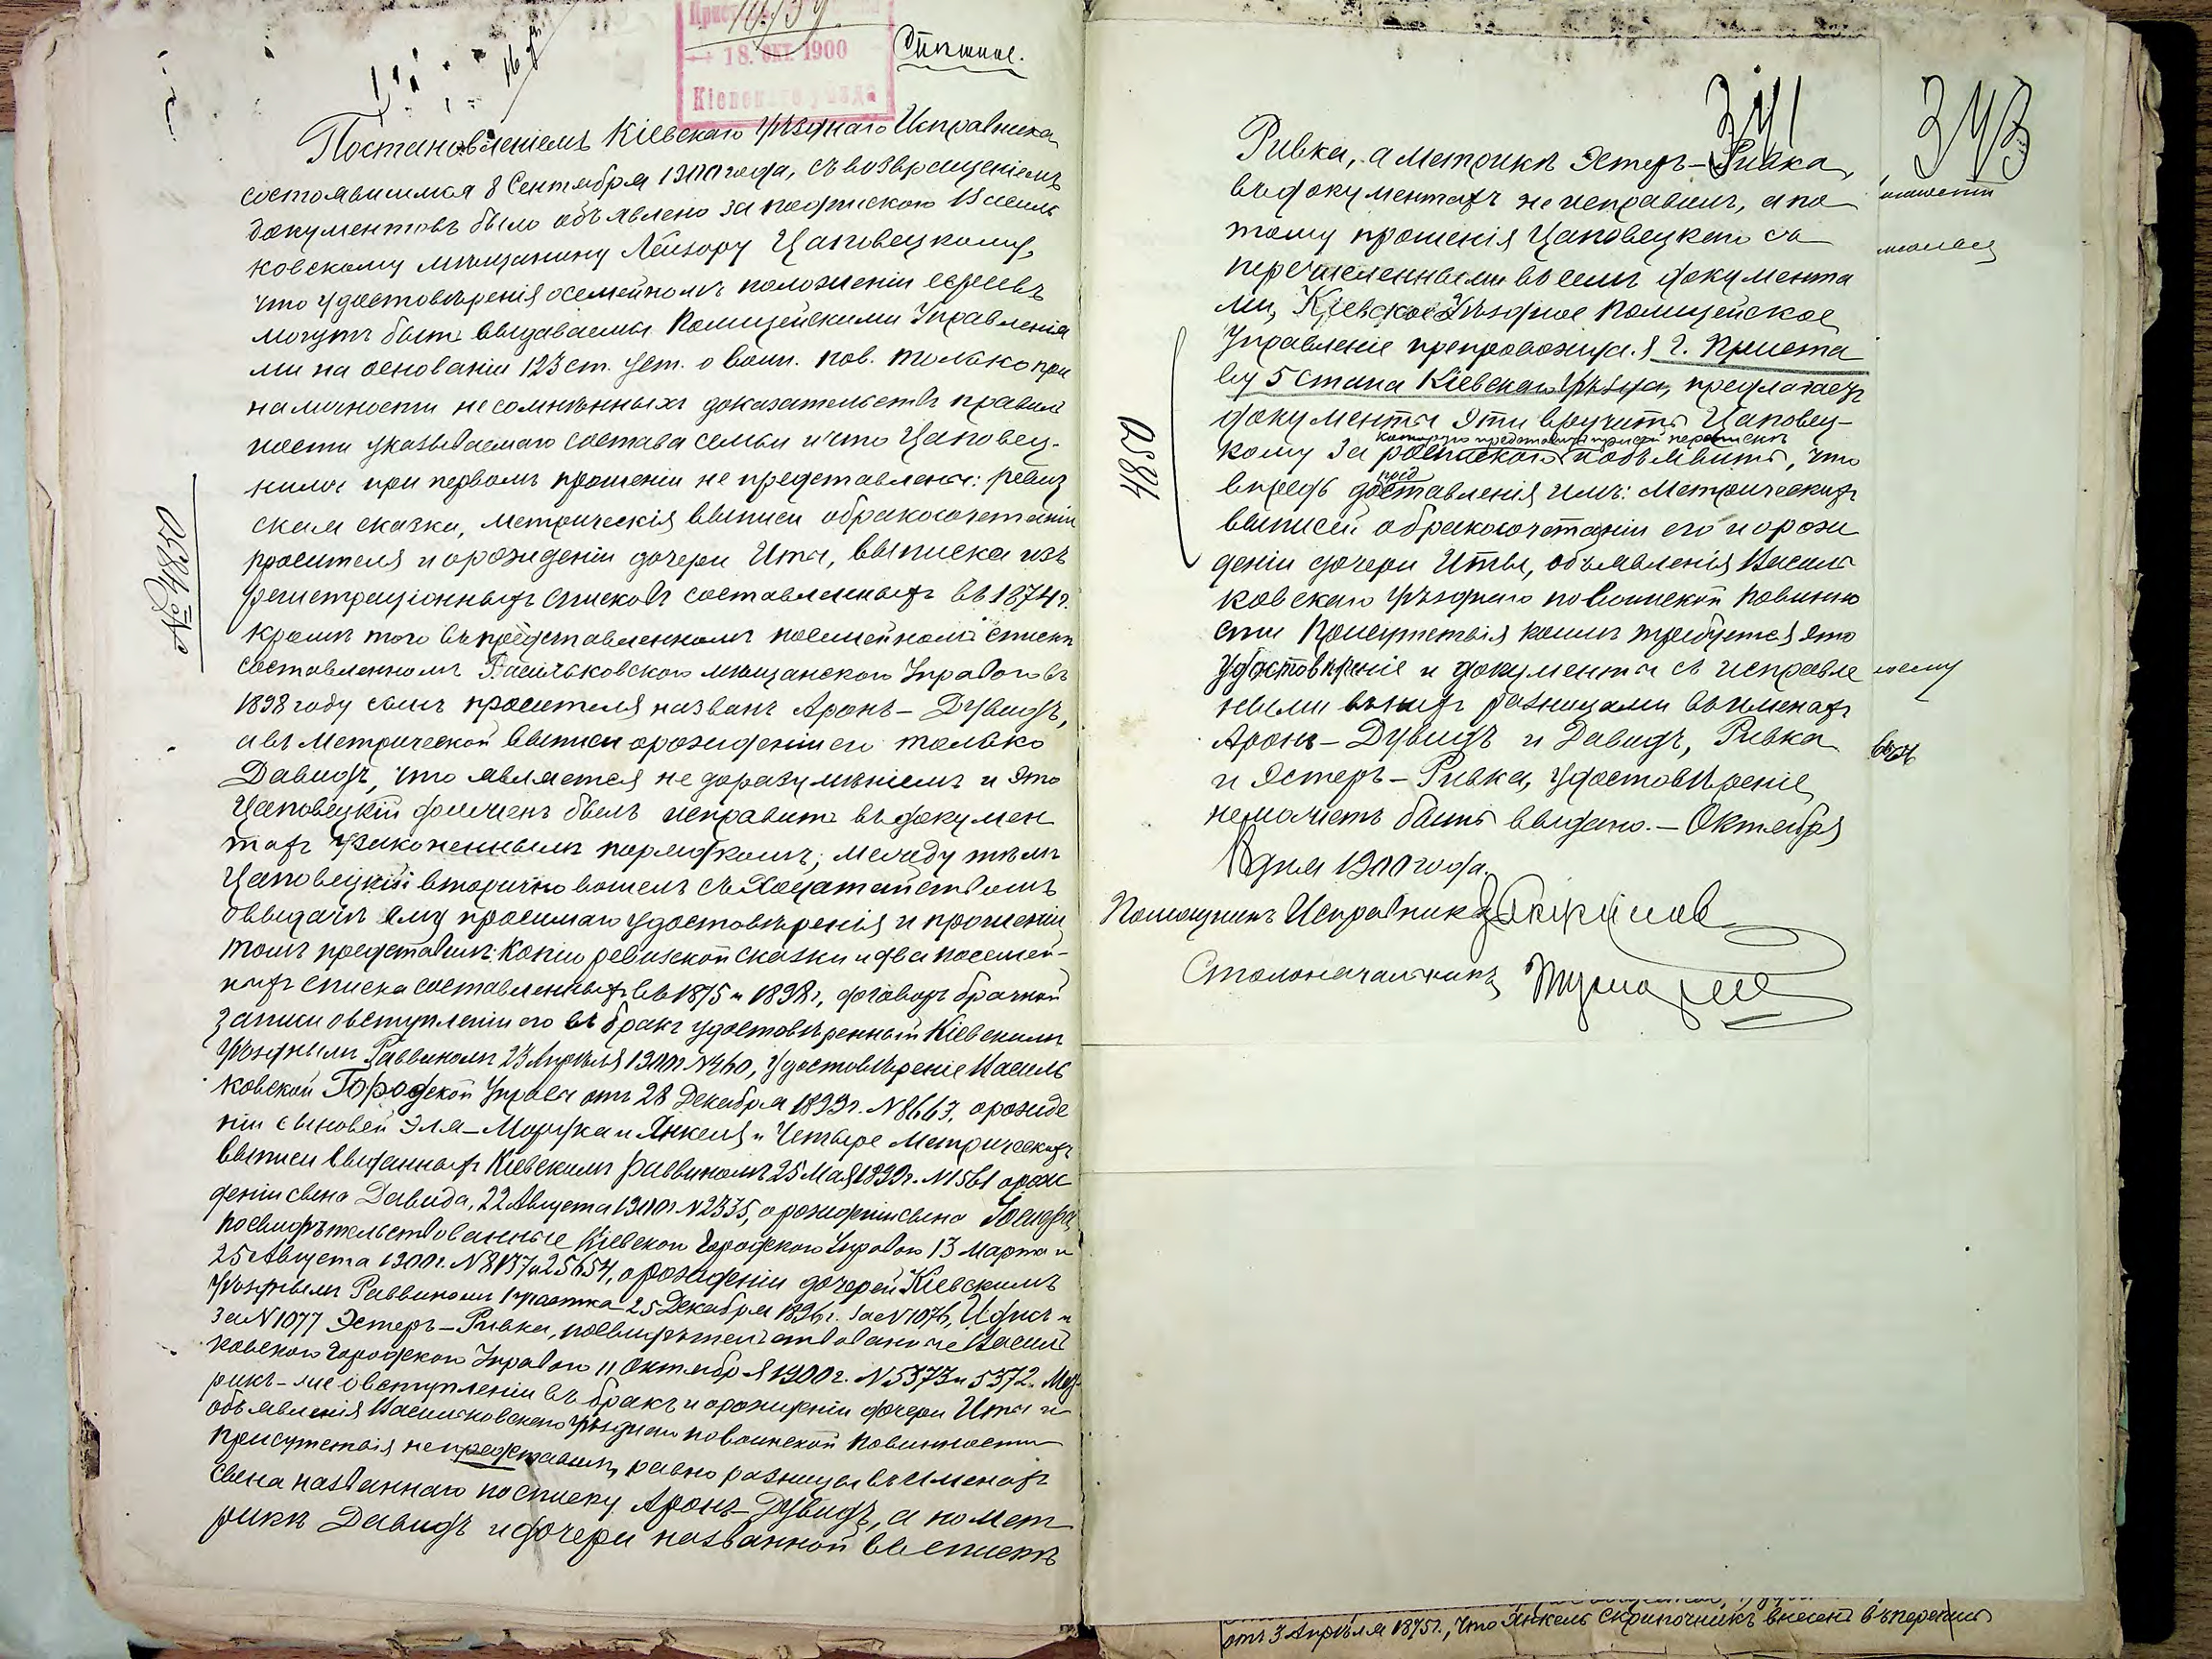 18. ОКТ. 1900
Кіевскаго уѣзда
Спѣшное.
Постановленіемъ Кіевскаго Уѣзднаго Исправника,
состоявшимся 8 Сентября 1900 года, съ возвращеніемъ
документовъ было объявлено за подпискою Василь
ковскому мѣщанину Лейзору Цаповецкому,
что удостовѣренія о семейномъ положеніи евреевъ
могутъ быть выдаваемы Полицейскими Управленія
ми на основаніи 123 ст. Уст. о воин. пов. только при
наличности несомнѣнныхъ доказательствъ правиль
ности указываемаго состава семьи и что Цаповец-
кимъ при первомъ прошеніи не представлены: ревиз
ская сказка, метрическія выписи о бракосочетаніи
просителя и о рожденіи дочери Иты, выписка изъ
регистраціонныхъ списковъ составленныхъ въ 1874 г.
кромѣ того въ представленномъ посемейномъ спискѣ
составленномъ Васильковскою мѣщанскою Управою въ
1898 году сынъ просителя названъ Аронъ-Дувидъ,
а въ метрической выписи о рожденіи его только
Давидъ, что является недоразумѣніемъ и это
Цаповецкій долженъ былъ исправить въ докумен
тахъ узаконеннымъ порядкомъ; между тѣмъ
Цаповецкій вторично вошелъ съ ходатайствомъ
о выдачѣ ему просимаго удостовѣренія и прошеніи
томъ представилъ: копію ревизской сказки и два посемей-
ныхъ списка составленныхъ въ 1875 и 1898 г., договоръ брачной
записи о вступленіи его въ бракъ удостовѣренный Кіевскимъ
Уѣзднымъ Раввиномъ 23 Апрѣля 1900 г. №460, удостовѣреніе Василь
ковской Городской Управы отъ 28 Декабря 1899 г. №8663, о рожде
ніи сыновей Эля-Мордка и Янкеля и четыре метрическихъ
выписи выданныхъ Кіевскимъ раввиномъ 25 Мая 1899 г. №1561 о рож
деніи сына Давида, 22 Августа 1900 г. №2335, о рожденіи сына Іосифа,
посвидѣтельствованные Кіевскою Городскою Управою 13 Марта и
25 Августа 1900 г. №8137 и 25654, о рожденіи дочерей Кіевскимъ
Уѣзднымъ Раввиномъ 1 участка 25 Декабря 1896 г. за №1076, и
за №1077 Эстеръ-Ривка, посвидѣтельствованные Василь
ковскою Городскою Управою 11 Октября 1900 г. №5373 и 5372. Мет-
рикъ-же о вступленіи въ бракъ и о рожденіи дочери Иты и
объявленія Васильковскаго Уѣзднаго по воинской повинности
Присутствія не представилъ, равно разницы въ именахъ
сына названнаго по списку Аронъ-Дувидъ, а по мет
рикѣ Давидъ и дочери названной въ спискѣ
№ 4850
341
343
Ривка, а метрикѣ Эстеръ-Ривка,
въ документахъ не исправилъ, а по
тому прошенія Цаповецкаго съ
перечисленными въ немъ документа
ми, Кіевское Уѣздное Полицейское
Управленіе препровождая г. Приста
ву 5 Стана Кіевскаго Уѣзда, предлагаетъ
документы эти вручить Цаповец-
кому за роспискою и объявить, что
впредь до представленія имъ: метрическихъ
выписей о бракосочетаніи его и о рож
деніи дочери Иты, объявленія Василь
ковскаго Уѣзднаго по воинской повинно
сти Присутствія коимъ требуется это
удостовѣреніе и документы съ исправле
ными въ нихъ разницами въ именахъ
Аронъ-Дувидъ и Давидъ, Ривка
и Эстеръ-Ривка, удостовѣреніе
неможетъ быть выдано.- Октября
дня 1900 года.
Помощникъ Исправника
Столоначальникъ
4850
отъ 3 Апрѣля 1875 г., что Янкель Скрипочникъ внесенъ въ перепись